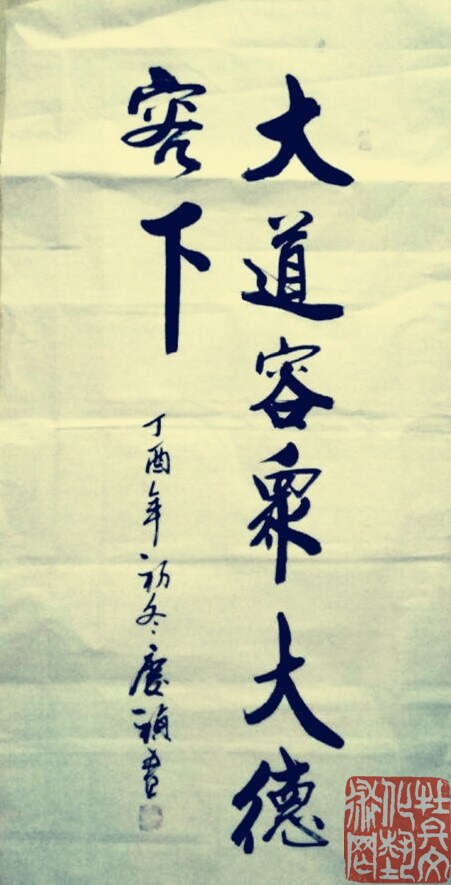 大道容眾大德
容下
丁酉年初冬慶禎書